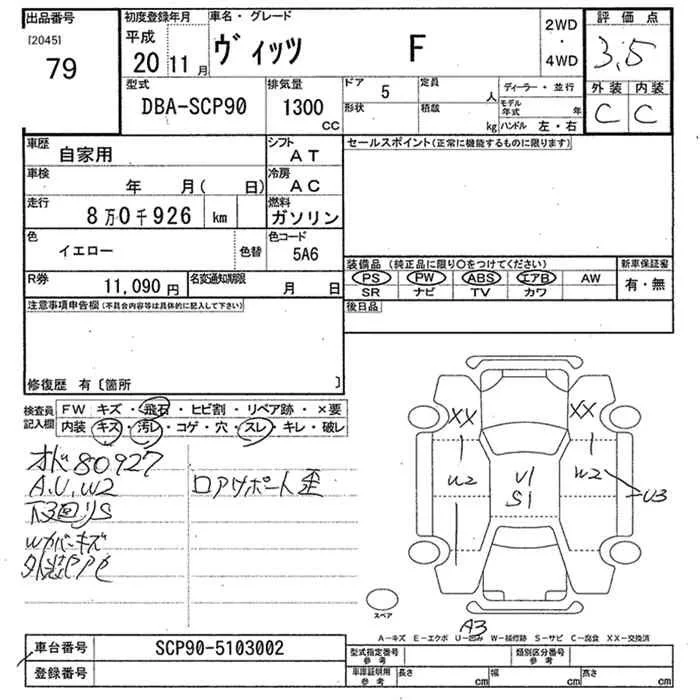 出品番号
[2045]
79
初度登録年月
平成
20 11月
車名・グレード
ヴィッツ F
2WD
・
4WD
評価点
3.5
外装 内装
C C
型式
DBA-SCP90
排気量
1300
CC
ドア
5
定員
人
形状
積載
kg
ディーラー・並行
モデル年式 年
ハンドル 左・右
車歴
自家用
シフト
AT
車検
年 月( 日)
冷房
AC
走行
8万0千926 km
燃料
ガソリン
色
イエロー
色替
色コード
5A6
R券
11,090円
名変通知期限
月 日
セールスポイント(正常に機能するものに限ります)
装備品(純正品に限り○をつけてください)
PS PW ABS エアB AW
SR ナビ TV カワ
新車保証書
有・無
後日品
注意事項申告欄(不具合内容等は具体的に記入して下さい)
修復歴 有〔箇所 〕
検査員記入欄
FW キズ・飛石・ヒビ割・リペア跡・×要
内装 キズ・汚レ・コゲ・穴・スレ・キレ・破レ
オド80927
A.U.W2
下回リS
Wカバーキズ
ロアサポート歪
XX XX
U2
U1
S1
W2
U3
A3
スペア
A-キズ E-エクボ U-凹み W-補修跡 S-サビ C-腐食 XX-交換済
車台番号
SCP90-5103002
登録番号
型式指定番号
参考
類別区分番号
参考
車庫証明用
参考
長さ cm
幅 cm
高さ cm